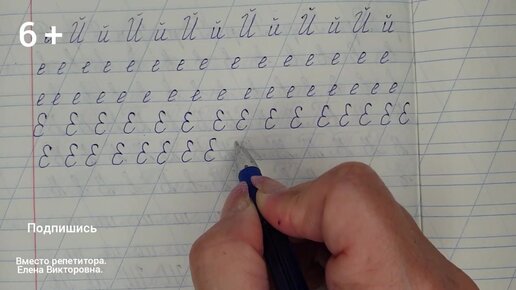 6 +
Й й Й й Й й Й й Й й Й й
е е е е е е е е е е е е е е е е
е е е е е е е е е е е е е е е е е е
Е Е Е Е Е Е Е Е Е Е Е Е Е Е Е
Е Е Е Е Е Е Е Е
Подпишись
Вместо репетитора.
Елена Викторовна.